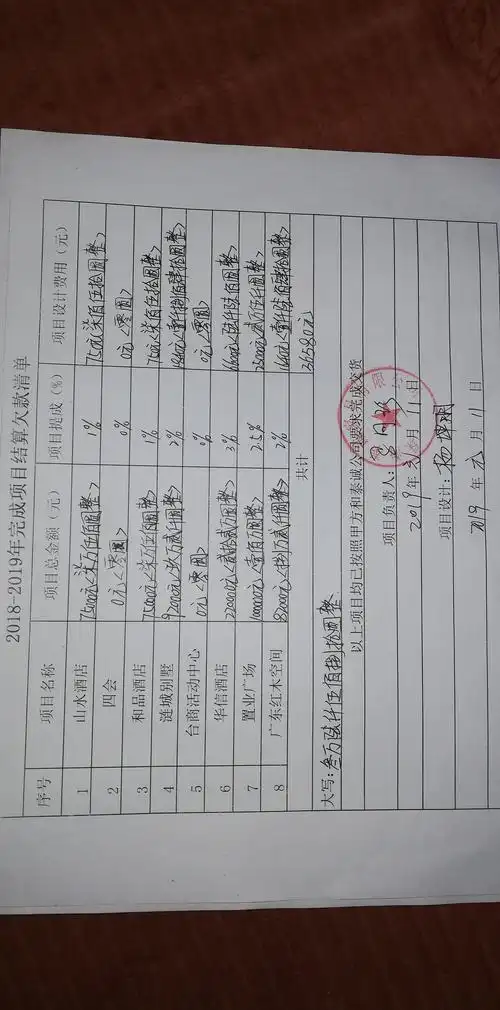 2018-2019年完成项目结算欠款清单
序号 项目名称 项目总金额（元） 项目提成（%） 项目设计费用（元）
1 山水酒店 75000元<柒万伍仟圆整> 1% 750元<柒百伍拾圆整>
2 四会 0元<零圆> 0% 0元<零圆>
3 和品酒店 75000元<柒万伍仟圆整> 1% 750元<柒百伍拾圆整>
4 涟城别墅 92000元<玖万贰仟圆整> 2% 1840元<壹仟捌佰肆拾圆整>
5 台商活动中心 0元<零圆> 0% 0元<零圆>
6 华信酒店 220000元<贰拾贰万圆整> 3% 6600元<陆仟陆佰圆整>
7 置业广场 1000000元<壹佰万圆整> 2.5% 25000元<贰万伍仟圆整>
8 广东红木空间 82000元<捌万贰仟圆整> 2% 1640元<壹仟陆佰肆拾圆整>
共计 36580元
大写：叁万陆仟伍佰捌拾圆整
以上项目均已按照甲方和泰诚公司要求完成交货
项目负责人：
2019年元月11日
项目设计：杨
2019年元月11日